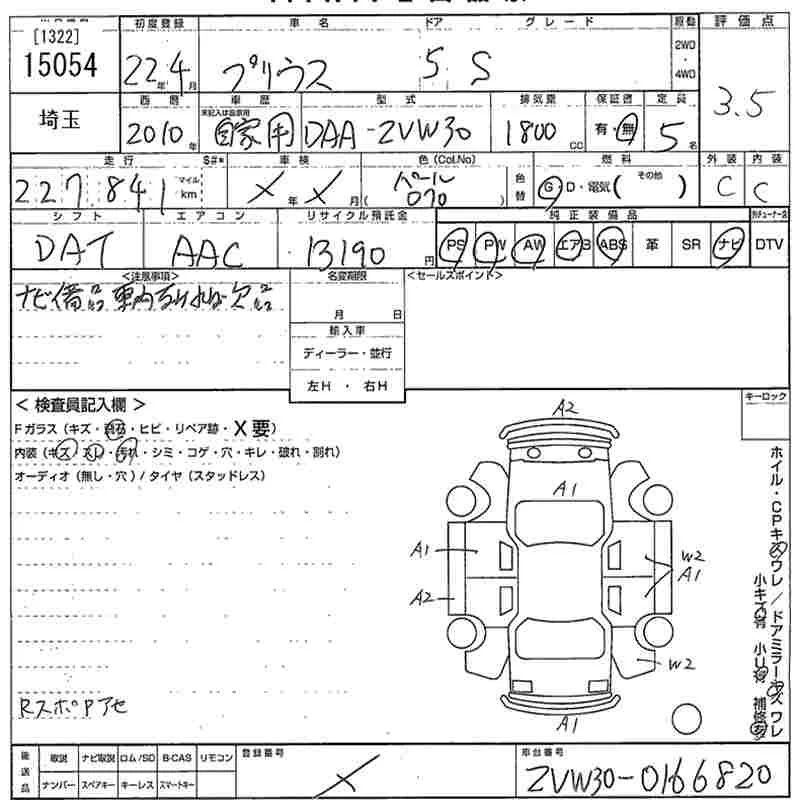 [1322]
15054
初度登録 車名 ドア グレード 駆動 評価点
22年4月 プリウス 5 S 2WD・4WD 3.5
埼玉
西暦 車歴 型式 排気量 保証書 定員
未記入は自家用
2010年 自家用 DAA-ZVW30 1800cc 有・無 5名
走行 S#* 車検 色(Col.No) 燃料 外装 内装
227,841 マイル km ×年×月 パール 070 色替 G・D・電気( その他 ) C C
シフト エアコン リサイクル預託金 純正装備品
DAT AAC 13190円 PS PW AW エアB ABS 革 SR ナビ DTV
<注意事項> 名変期限 <セールスポイント>
ナビ備品 車内なければ欠品
月 日
輸入車
ディーラー・並行
左H ・ 右H
キーロック
< 検査員記入欄 >
Fガラス(キズ・飛石・ヒビ・リペア跡・X要)
内装(キズ・スレ・汚れ・シミ・コゲ・穴・キレ・破れ・剥れ)
オーディオ(無し・穴)/タイヤ(スタッドレス)
A2
A1
A1
A2
W2
A1
W2
A1
ホイル・CPキズワレ/ドアミラーキズワレ
小キズ有 小U有 補修有
RスポPアセ
後送品 取説 ナビ取説 ロム/SD B-CAS リモコン
ナンバー スペアキー キーレス スマートキー
登録番号 ×
車台番号
ZVW30-0166820